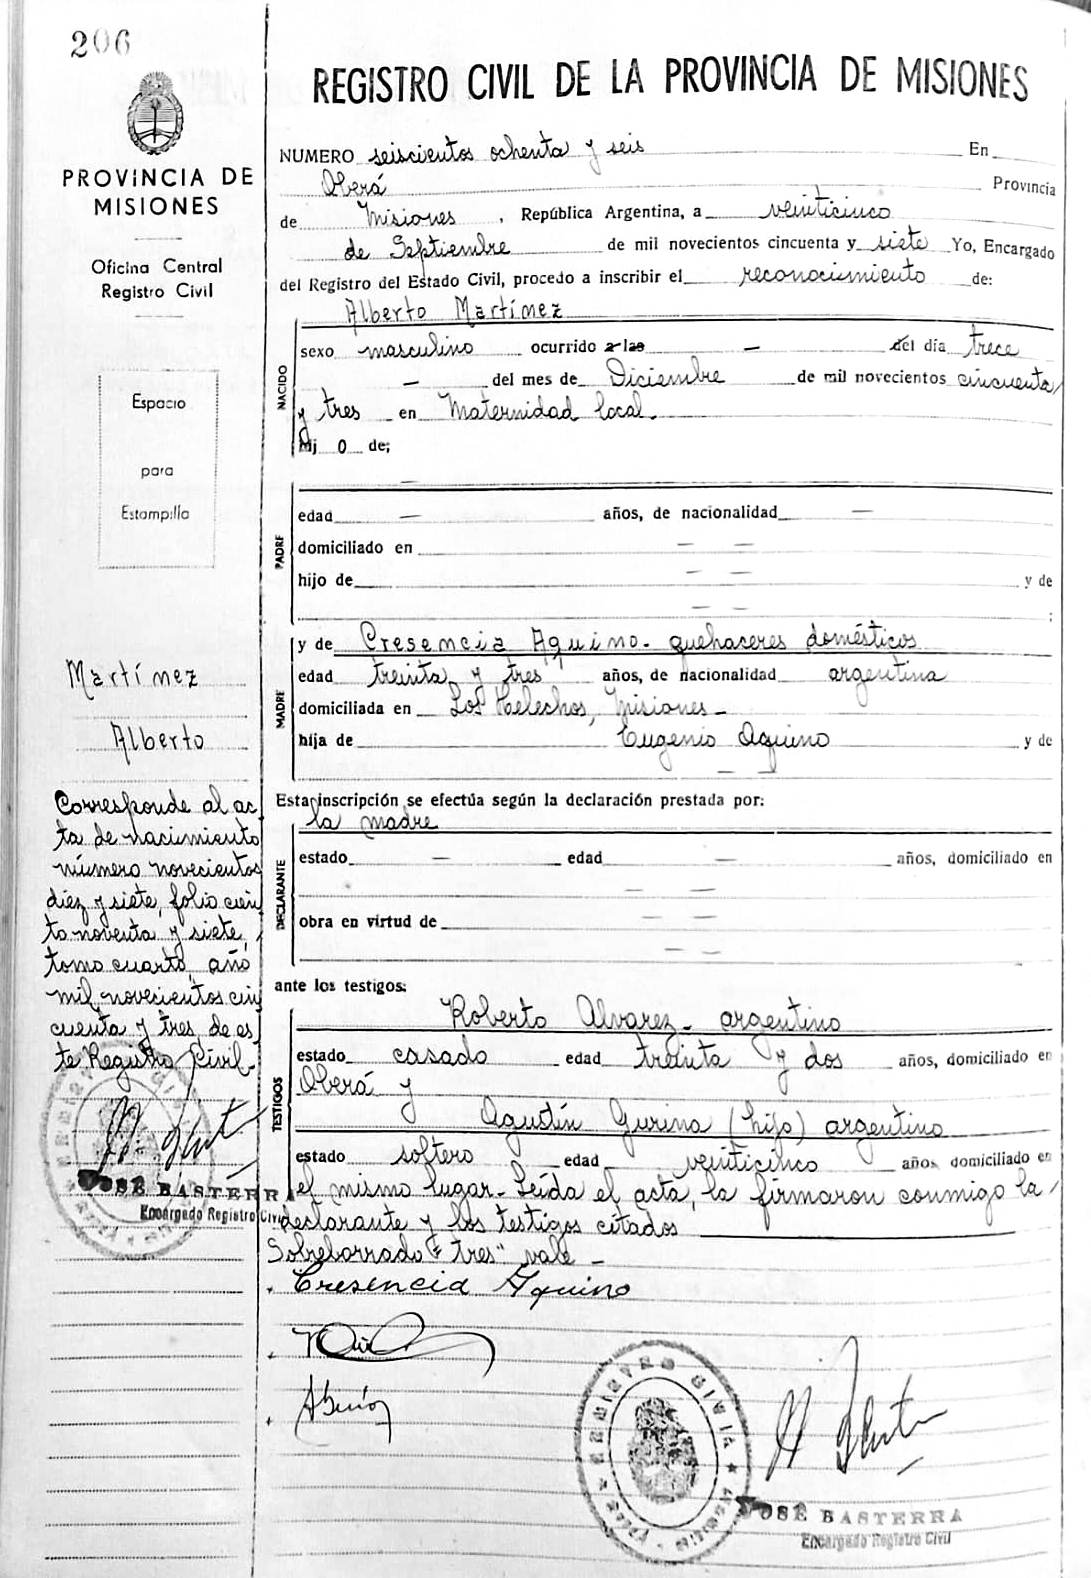 206
PROVINCIA DE
MISIONES
Oficina Central
Registro Civil
Espacio
para
Estampilla
Martínez
Alberto
Corresponde al ac
ta de nacimiento
número novecientos
diez y siete, folio cien
to noventa y siete,
tomo cuarto, año
mil novecientos cin
cuenta y tres, de es
te Registro Civil-
JOSÉ BASTERRA
Encargado Registro Civil
REGISTRO CIVIL DE LA PROVINCIA DE MISIONES
NUMERO seiscientos ochenta y seis En
Oberá Provincia
de Misiones , República Argentina, a veinticinco
de Septiembre de mil novecientos cincuenta y siete Yo, Encargado
del Registro del Estado Civil, procedo a inscribir el reconocimiento de:
Alberto Martínez
NACIDO
sexo masculino ocurrido a las — del día trece
— del mes de Diciembre de mil novecientos cincuenta
y tres en Maternidad local.
hij o de;
PADRE
—
edad — años, de nacionalidad —
domiciliado en — —
hijo de — — y de
— — ;
MADRE
y de Cresencia Aquino- quehaceres domésticos
edad treinta y tres años, de nacionalidad argentina
domiciliada en Los Helechos, Misiones -
hija de Eugenio Aquino y de
— —
Esta inscripción se efectúa según la declaración prestada por:
la madre
DECLARANTE
estado — edad — años, domiciliado en
— —
obra en virtud de — —
— —
ante los testigos:
TESTIGOS
Roberto Alvarez- argentino
estado casado edad treinta y dos años, domiciliado en
Oberá y
Agustín Gurina (hijo) argentino
estado soltero edad veinticinco años, domiciliado en
el mismo lugar- Leída el acta, la firmaron conmigo la
declarante y los testigos citados
Sobreborrado "tres" vale -
Cresencia Aquino
REGISTRO CIVIL
JOSÉ BASTERRA
Encargado Registro Civil